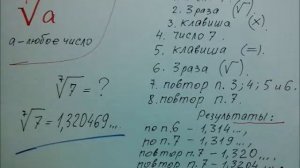 ⁷√a
a - любое число
⁷√7 = ?
⁷√7 = 1,320469...
2. 3 раза (√‾)
3. клавиша (×)
4. число 7.
5. клавиша (=).
6. 3 раза (√‾).
7. повтор п. 3; 4; 5 и 6.
8. повтор п. 7.
Результаты:
по п.6 - 1,314...,
по п.7 - 1,319...,
повтор п.7 - 1,320...,
повтор п.7 - 1,3204...